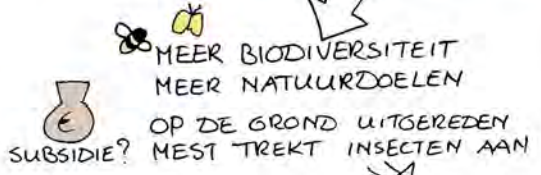 MEER BIODIVERSITEIT
MEER NATUURDOELEN
€
OP DE GROND UITGEREDEN
SUBSIDIE? MEST TREKT INSECTEN AAN